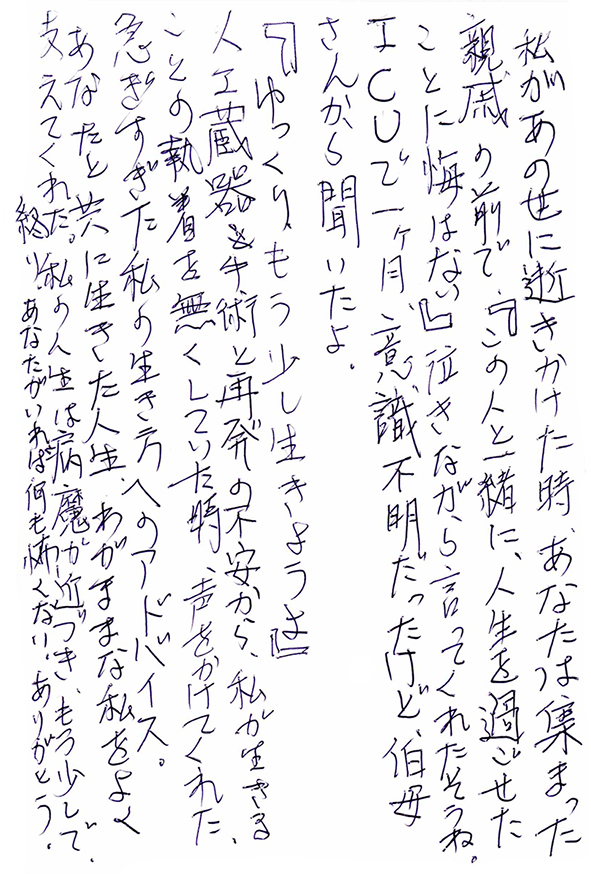 私があの世に逝きかけた時、あなたは集まった
親戚の前で、『この人と一緒に、人生を過ごせた
ことに悔はない』泣きながら言ってくれたそうね。
ICUで一ヶ月、意識不明だったけど、伯母
さんから聞いたよ。
『ゆっくり、もう少し生きようよ』
人工蔵器と手術と再発の不安から、私が生きる
ことの執着を無くしていた時、声をかけてくれた、
急ぎすぎた私の生き方へのアドバイス。
あなたと共に生きた人生、わがままな私をよく
支えてくれた。私の人生は病魔が近づき、もう少しで、
終り、あなたがいれば何も怖くない。ありがとう。